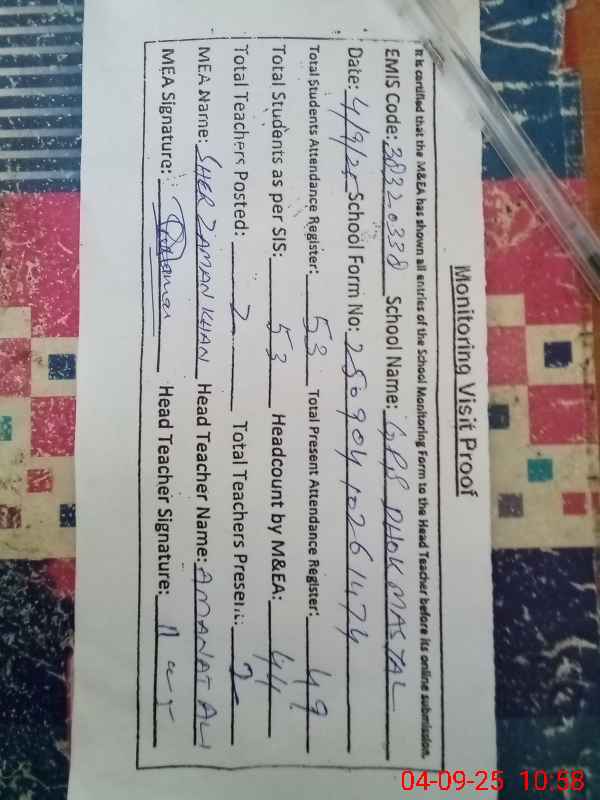 Monitoring Visit Proof
It is certified that the M&EA has shown all entries of the School Monitoring Form to the Head Teacher before its online submission.
EMIS Code: 38320338 School Name: GPS DHOK MASYAL
Date: 4/9/25 School Form No: 25090410261474
Total Students Attendance Register: 53 Total Present Attendance Register: 49
Total Students as per SIS: 53 Headcount by M&EA: 44
Total Teachers Posted: 2 Total Teachers Present: 2
MEA Name: SHER ZAMAN KHAN Head Teacher Name: AMANAT ALI
MEA Signature: Head Teacher Signature:
04-09-25 10:58